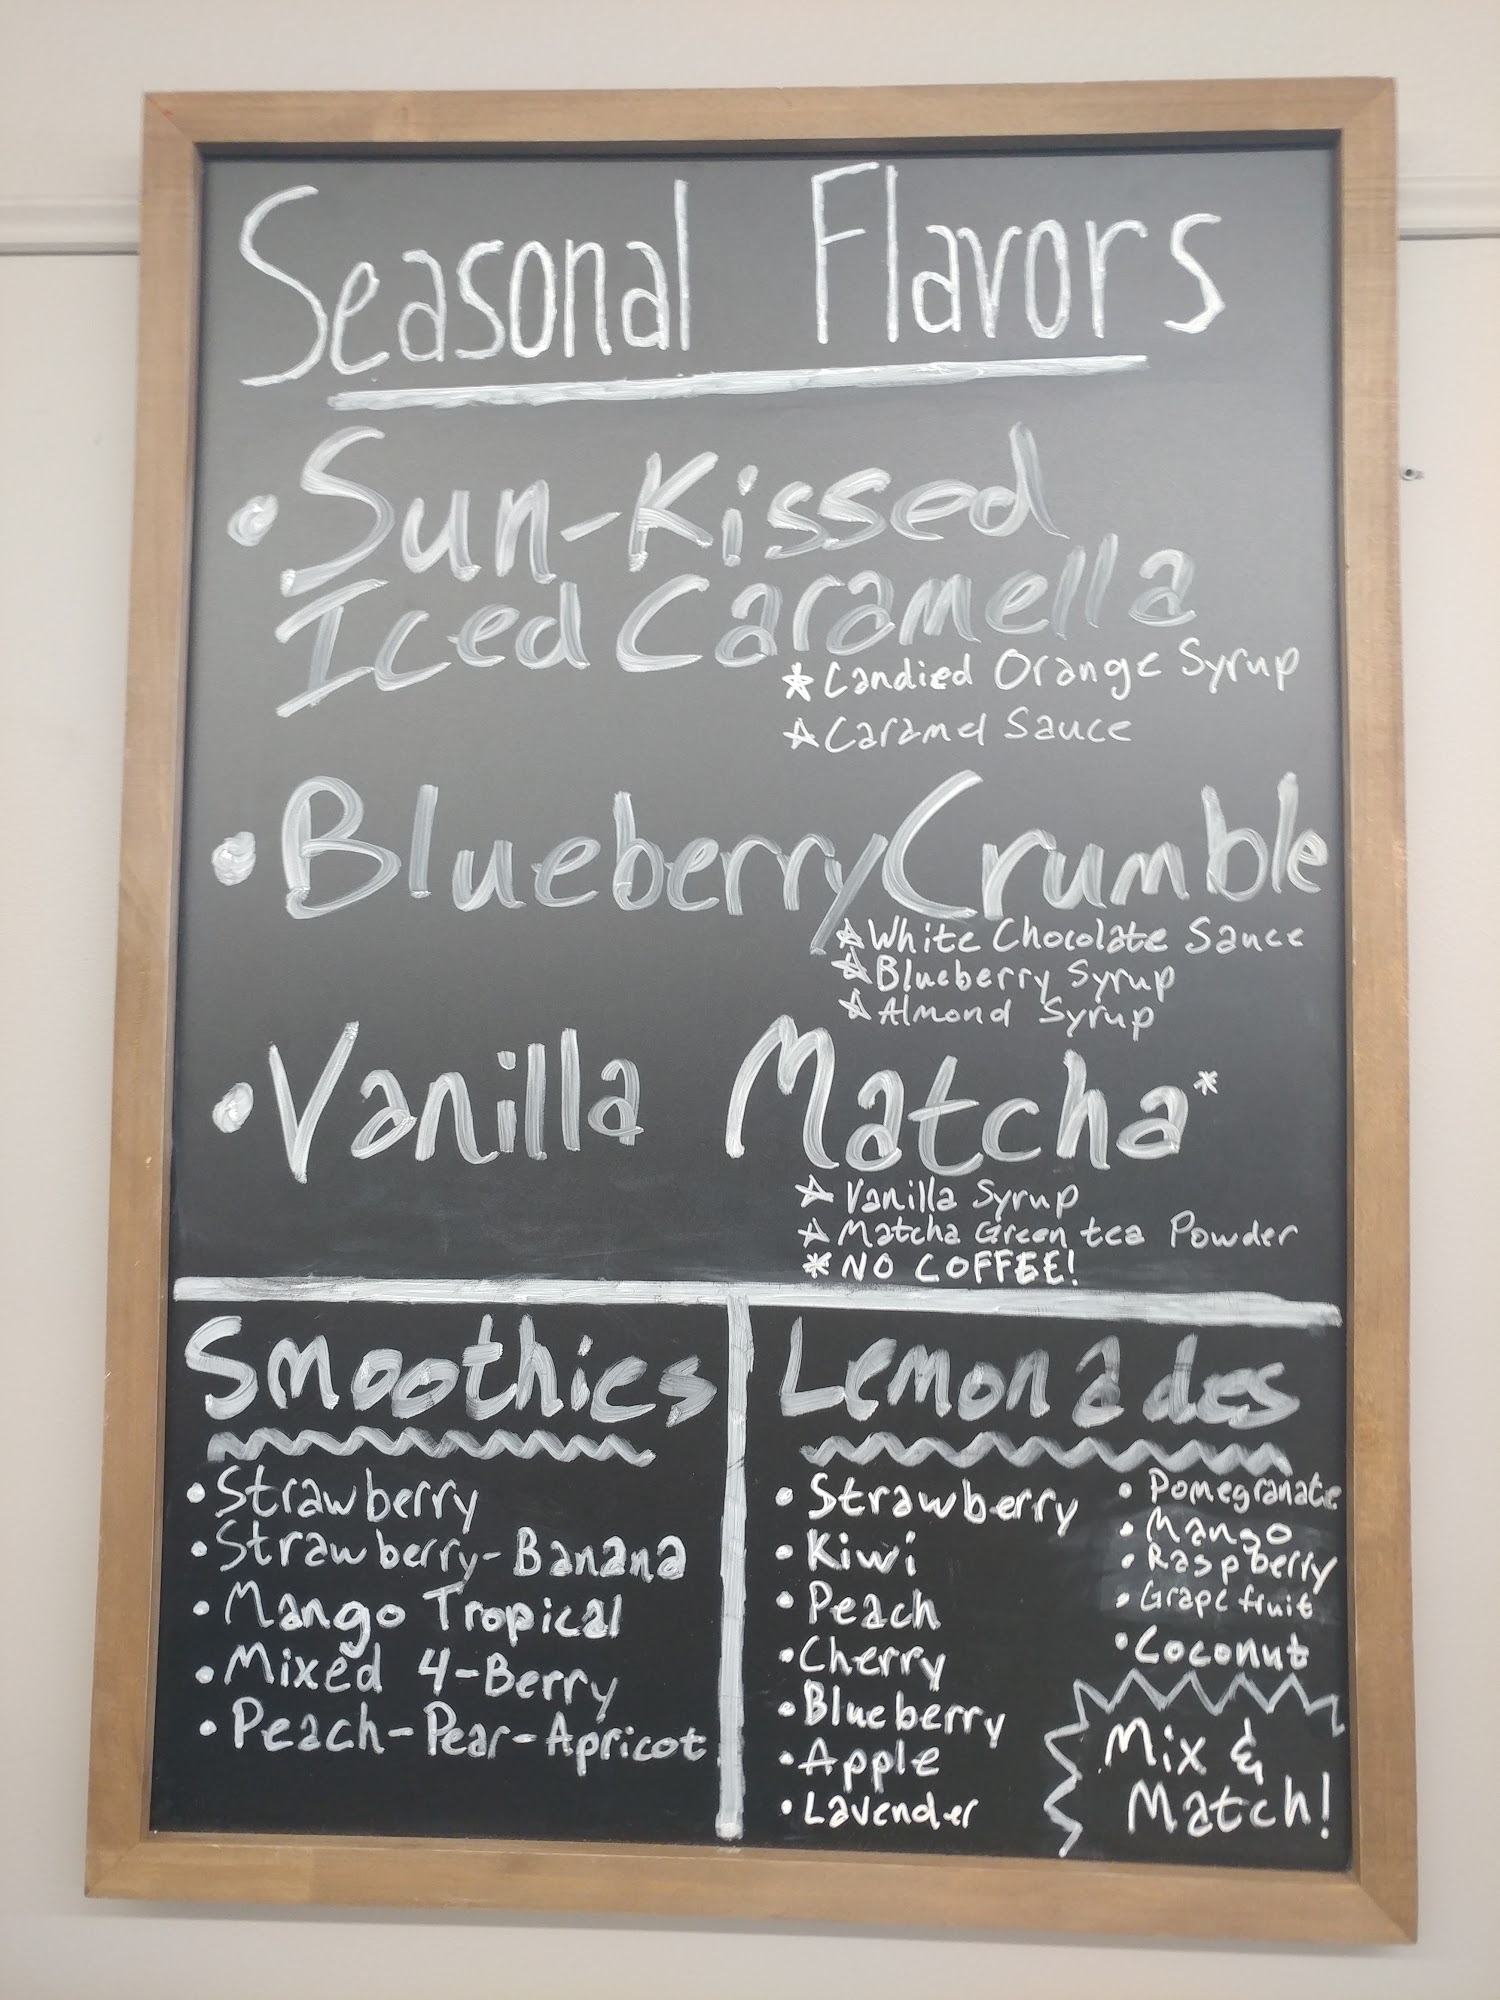 Seasonal Flavors
• Sun-Kissed
Iced Caramella
☆ Candied Orange Syrup
☆ Caramel Sauce
• Blueberry Crumble
☆ White Chocolate Sauce
☆ Blueberry Syrup
☆ Almond Syrup
• Vanilla Matcha*
☆ Vanilla Syrup
☆ Matcha Green tea Powder
* NO COFFEE!
Smoothies
• Strawberry
• Strawberry-Banana
• Mango Tropical
• Mixed 4-Berry
• Peach-Pear-Apricot
Lemonades
• Strawberry
• Kiwi
• Peach
• Cherry
• Blueberry
• Apple
• Lavender
• Pomegranate
• Mango
• Raspberry
• Grapefruit
• Coconut
Mix &
Match!